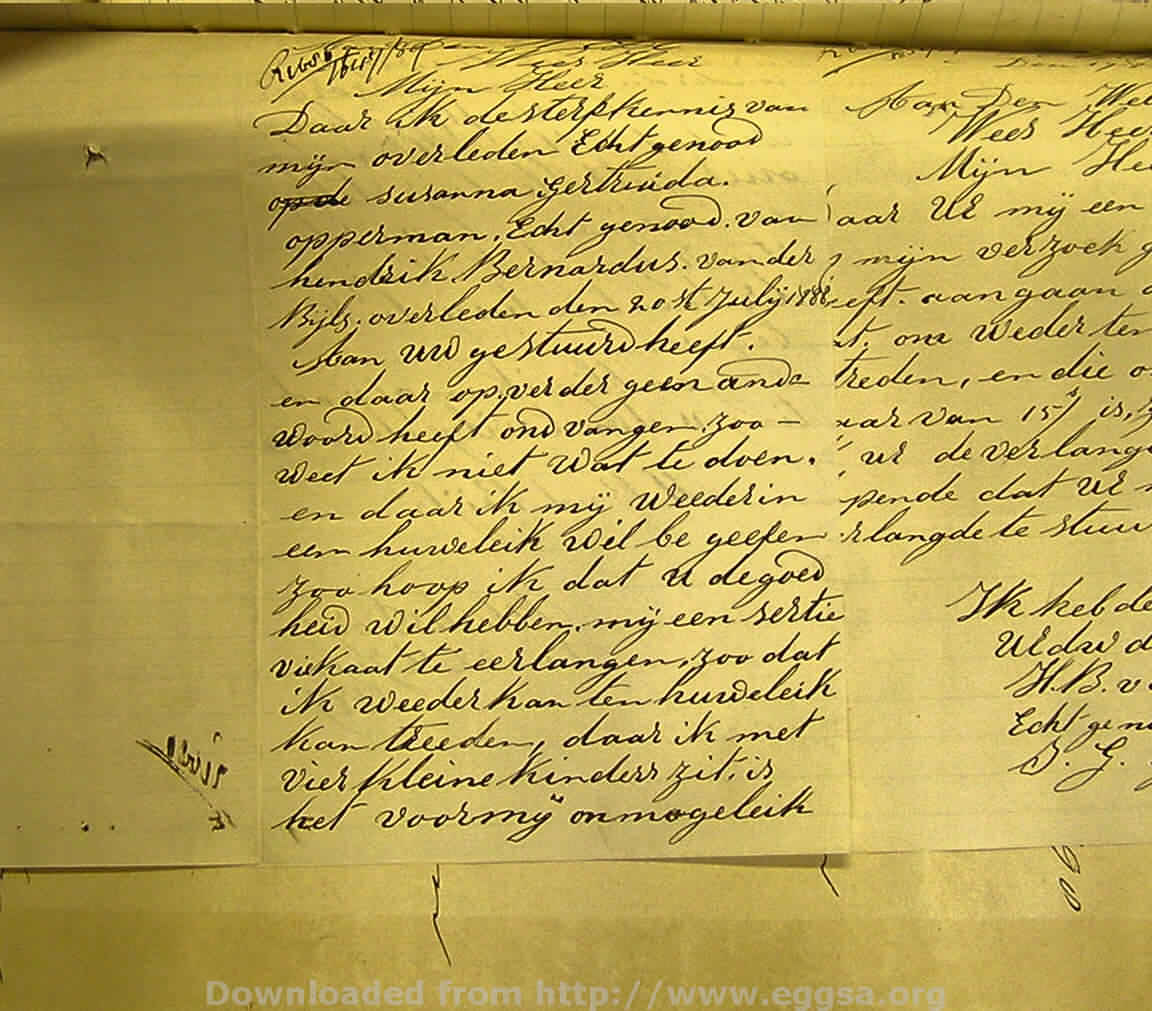 Wees Heer
Mijn Heer
Daar ik de sterfkennis van
mijn overleden Echt genood
susanna Gertruida.
opperman. Echt genood. van
hendrik Bernardus. van der
Bijls. overleden den 20st July 1888
Aan UW gestuurd heeft.
en daar op. verder geen
woord heeft ond vangen. zoo -
weet ik niet wat te doen.
en daar ik mij weeder in
een huweleik wil be geefen
zoo hoop ik dat u de goed
heid wil hebben. mij een sertie
viekaat te eerlangen, zoo dat
ik weeder kan ten huweleik
kan treeden, daar ik met
vier kleine kinders zit. is
het voor mij onmogeleik
Aan Den Wel
Wees Heer
Mijn Hee
aar UE mij een
mijn verzoek g
eeft. aan gaan
t. om weder ten
treden, en die
aar van 15/ is,
UE de verlang
pende dat UE
rlangde te stuu
Ik heb de
UEdw d
H. B. v
Echt gen
S. G.
Downloaded from http://www.eggsa.org